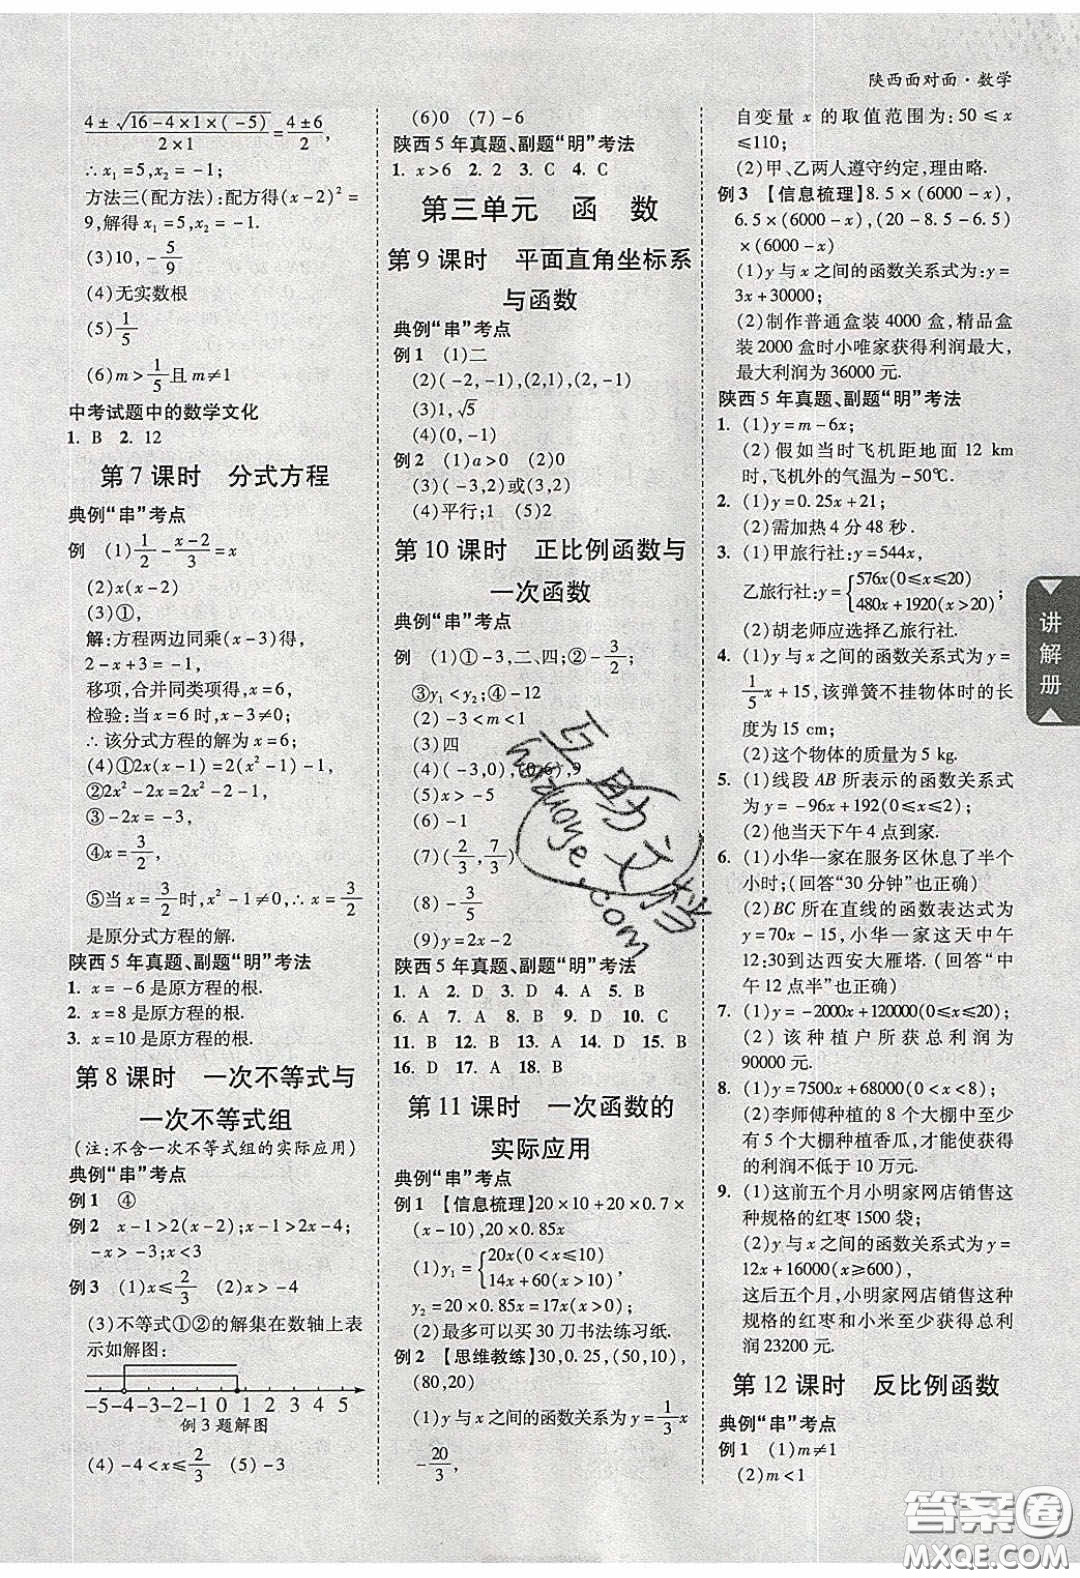 陕西面对面·数学
4±√(16-4×1×(-5))/2×1=4±6/2,
∴x₁=5,x₂=-1;
方法三(配方法):配方得(x-2)²=
9,解得x₁=5,x₂=-1.
(3)10,-5/9
(4)无实数根
(5)1/5
(6)m>1/5且m≠1
中考试题中的数学文化
1. B 2. 12
第7课时 分式方程
典例“串”考点
例 (1)1/2-(x-2)/3=x
(2)2(x-3)
(3)①,
解:方程两边同乘(x-3)得,
2-x+3=-1,
移项,合并同类项得,x=6,
检验:当x=6时,x-3≠0;
∴该分式方程的解为x=6;
(4)①2x(x-1)=2(x²-1)+x
②2x²-2x=2x²-2+x
③-2x=-3,
④x=3/2,
⑤当x=3/2时,x²-1≠0,则x=3/2
是原分式方程的解.
陕西5年真题、副题“明”考法
1. x=-6是原方程的根.
2. x=8是原方程的根.
3. x=10是原方程的根.
第8课时 一次不等式与
一次不等式组
(注:不含一次不等式组的实际应用)
典例“串”考点
例1 ④
例2 x-1>2(x-2);x-1>2x-4;
-x>-3;x<3
例3 (1)x≤2/3 (2)x>-4
(3)不等式①②的解集在数轴上表
示如解图:
-5-4-3-2-1 0 1 2 3 4 5
例3题解图
(4)-4<x≤2/3 (5)-3
(6)0 (7)-6
陕西5年真题、副题“明”考法
1. x>6 2. 2 3. C 4. C
第三单元 函 数
第9课时 平面直角坐标系
与函数
典例“串”考点
例1 (1)二
(2)(-2,-1),(2,1),(-2,1)
(3)1,√5
(4)(0,-1)
例2 (1)a>0 (2)0
(3)(-3,2)或(3,2)
(4)平行;1 (5)2
第10课时 正比例函数与
一次函数
典例“串”考点
例 (1)①-3,二、四;②-3/2;
③y₁<y₂;④-12
(2)-3<m<1
(3)四
(4)(-3,0),(0,6),9
(5)x>-5
(6)-1
(7)(2/3,7/3)
(8)-3/5
(9)y=2x-2
陕西5年真题、副题“明”考法
1. A 2. D 3. D 4. A 5. B
6. A 7. A 8. B 9. D 10. C
11. B 12. B 13. A 14. D 15. B
16. D 17. A 18. B
第11课时 一次函数的
实际应用
典例“串”考点
例1 【信息梳理】20×10+20×0.7×
(x-10),20×0.85x
(1)y₁={20x(0<x≤10)
14x+60(x>10),
y₂=20×0.85x=17x(x>0);
(2)最多可以买30刀书法练习纸.
例2 【思维教练】30,0.25,(50,10),
(80,20)
(1)y与x之间的函数关系为y=1/3x
-20/3,
自变量x的取值范围为:50≤x
≤110;
(2)甲、乙两人遵守约定,理由略.
例3 【信息梳理】8.5×(6000-x),
6.5×(6000-x),(20-8.5-6.5)
×(6000-x)
(1)y与x之间的函数关系式为:y=
3x+30000;
(2)制作普通盒装4000盒,精品盒
装2000盒时小唯家获得利润最大,
最大利润为36000元.
陕西5年真题、副题“明”考法
1. (1)y=m-6x;
(2)假如当时飞机距地面12 km
时,飞机外的气温为-50℃.
2. (1)y=0.25x+21;
(2)需加热4分48秒.
3. (1)甲旅行社:y=544x,
乙旅行社:y={576x(0≤x≤20)
480x+1920(x>20);
(2)胡老师应选择乙旅行社.
4. (1)y与x之间的函数关系式为y=
1/5x+15,该弹簧不挂物体时的长
度为15 cm;
(2)这个物体的质量为5 kg.
5. (1)线段AB所表示的函数关系式
为y=-96x+192(0≤x≤2);
(2)他当天下午4点到家.
6. (1)小华一家在服务区休息了半个
小时;(回答“30分钟”也正确)
(2)BC所在直线的函数表达式为
y=70x-15,小华一家这天中午
12:30到达西安大雁塔.(回答“中
午12点半”也正确)
7. (1)y=-2000x+120000(0≤x≤20);
(2)该种植户所获总利润为
90000元.
8. (1)y=7500x+68000(0<x<8);
(2)李师傅种植的8个大棚中至少
有5个大棚种植香瓜,才能使获得
的利润不低于10万元.
9. (1)这前五个月小明家网店销售这
种规格的红枣1500袋;
(2)y与x之间的函数关系式为y=
12x+16000(x≥600),
这后五个月,小明家网店销售这种
规格的红枣和小米至少获得总利
润23200元.
第12课时 反比例函数
典例“串”考点
例1 (1)m≠1
(2)m<1
讲解册
互助文档
hdzuoye.com
答案圈
MXQE.COM